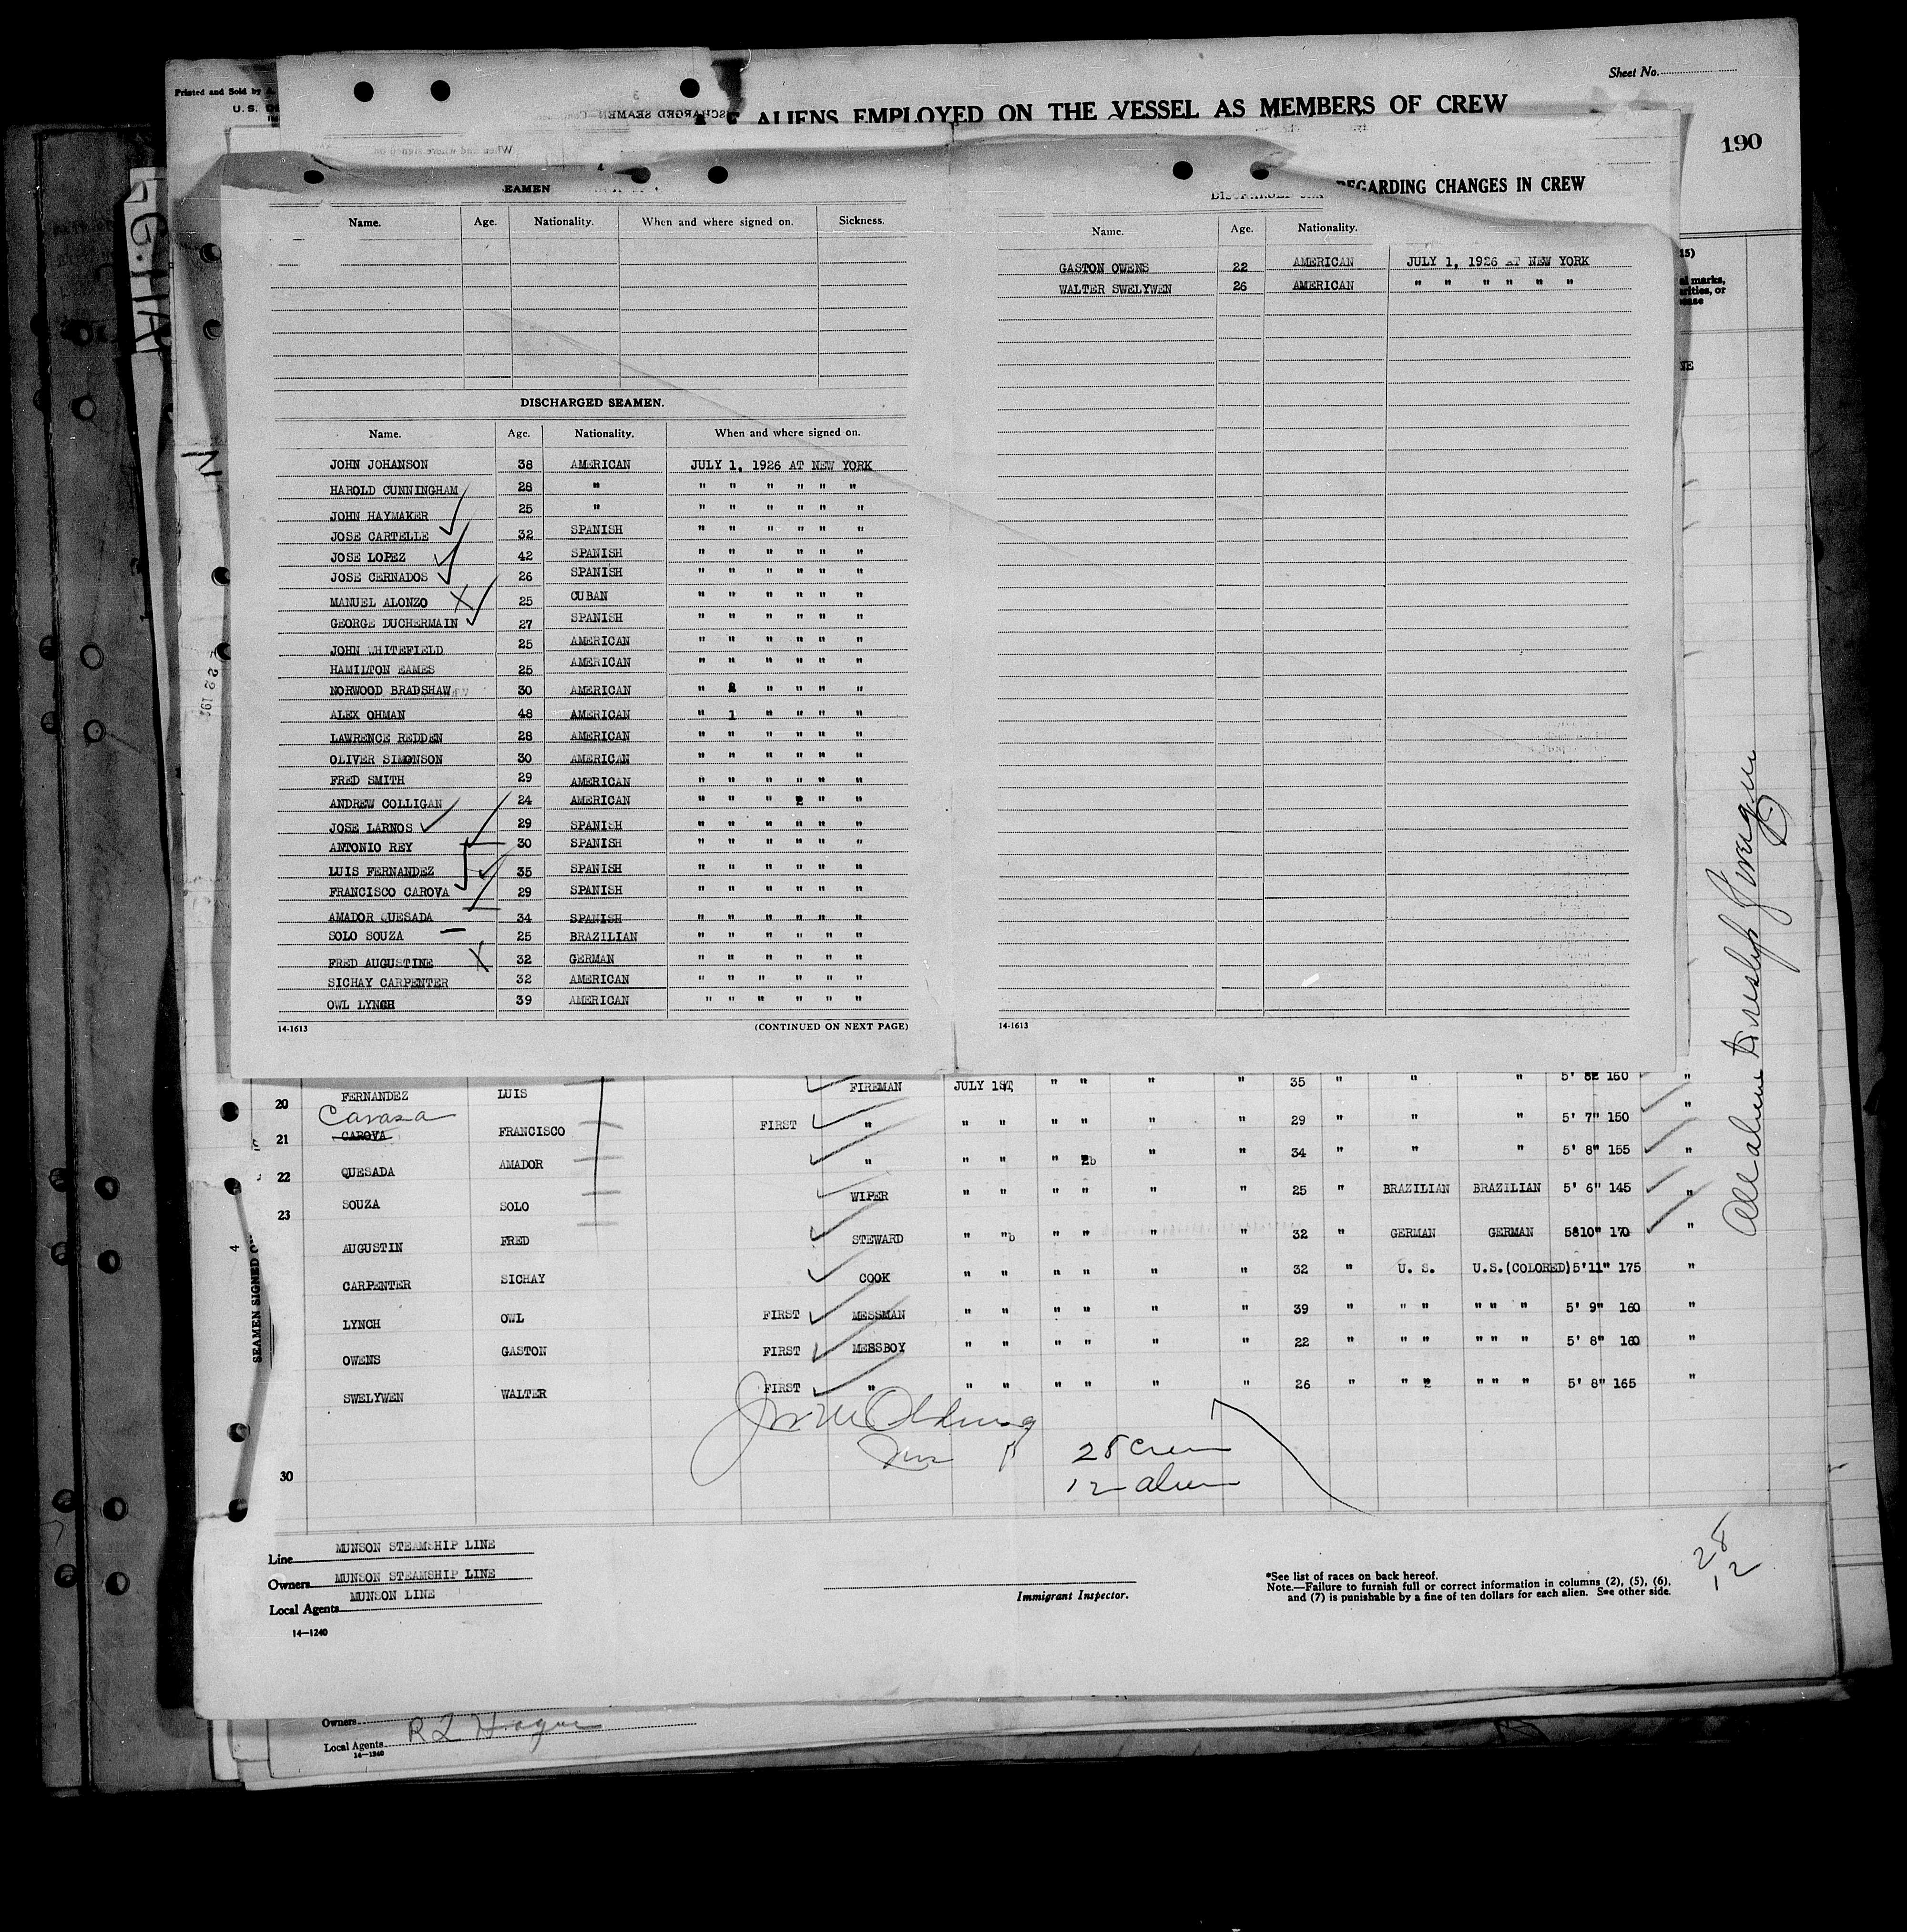 Sheet No.
Printed and Sold by
U. S.
ALIENS EMPLOYED ON THE VESSEL AS MEMBERS OF CREW
190
DISCHARGED SEAMEN
When and where signed on
SEAMEN
REGARDING CHANGES IN CREW
Name. Age. Nationality. When and where signed on. Sickness.
Name. Age. Nationality.
GASTON OWENS 22 AMERICAN JULY 1, 1926 AT NEW YORK
WALTER SWELYWEN 26 AMERICAN " " " " " "
DISCHARGED SEAMEN.
Name. Age. Nationality. When and where signed on.
JOHN JOHANSON 38 AMERICAN JULY 1, 1926 AT NEW YORK
HAROLD CUNNINGHAM 28 " " " " " " "
JOHN HAYMAKER 25 " " " " " " "
JOSE CARTELLE 32 SPANISH " " " " " "
JOSE LOPEZ 42 SPANISH " " " " " "
JOSE CERNADOS 26 SPANISH " " " " " "
MANUEL ALONZO X 25 CUBAN " " " " " "
GEORGE DUCHERMAIN 27 SPANISH " " " " " "
JOHN WHITEFIELD 25 AMERICAN " " " " " "
HAMILTON EAMES 25 AMERICAN " " " " " "
NORWOOD BRADSHAW 30 AMERICAN " 2 " " " "
ALEX OHMAN 48 AMERICAN " 1 " " " "
LAWRENCE REDDEN 28 AMERICAN " " " " " "
OLIVER SIMONSON 30 AMERICAN " " " " " "
FRED SMITH 29 AMERICAN " " " " " "
ANDREW COLLIGAN 24 AMERICAN " " " " " "
JOSE LARNOS 29 SPANISH " " " " " "
ANTONIO REY 30 SPANISH " " " " " "
LUIS FERNANDEZ 35 SPANISH " " " " " "
FRANCISCO CAROVA 29 SPANISH " " " " " "
AMADOR QUESADA 34 SPANISH " " " " " "
SOLO SOUZA 25 BRAZILIAN " " " " " "
FRED AUGUSTINE X 32 GERMAN " " " " " "
SICHAY CARPENTER 32 AMERICAN " " " " " "
OWL LYNCH 39 AMERICAN " " " " " "
14-1613 (CONTINUED ON NEXT PAGE)
14-1613
20 FERNANDEZ LUIS FIREMAN JULY 1ST, " " " " 35 " " " 5' 8" 160 "
Carasa
21 CAROVA FRANCISCO FIRST " " " " " " " 29 " " " 5' 7" 150 "
22 QUESADA AMADOR " " " " " " 34 " " " 5' 8" 155 "
23 SOUZA SOLO WIPER " " " " " " 25 " BRAZILIAN BRAZILIAN 5' 6" 145 "
AUGUSTIN FRED STEWARD " " " " " " 32 " GERMAN GERMAN 5'10" 170 "
CARPENTER SICHAY COOK " " " " " " 32 " U. S. U.S.(COLORED) 5'11" 175 "
LYNCH OWL FIRST MESSMAN " " " " " " 39 " " " " " " 5' 9" 160 "
OWENS GASTON FIRST MESSBOY " " " " " " 22 " " " " " " 5' 8" 160 "
SWELYWEN WALTER FIRST " " " " " " " 26 " " " " " " 5' 8" 165 "
28 Crew
12 alien
30
SEAMEN SIGNED ON
Line MUNSON STEAMSHIP LINE
Owners MUNSON STEAMSHIP LINE
Local Agents MUNSON LINE
14—1240
Immigrant Inspector.
*See list of races on back hereof.
Note.—Failure to furnish full or correct information in columns (2), (5), (6),
and (7) is punishable by a fine of ten dollars for each alien. See other side.
28
12
Owners
Local Agents R L Hague
14—1240